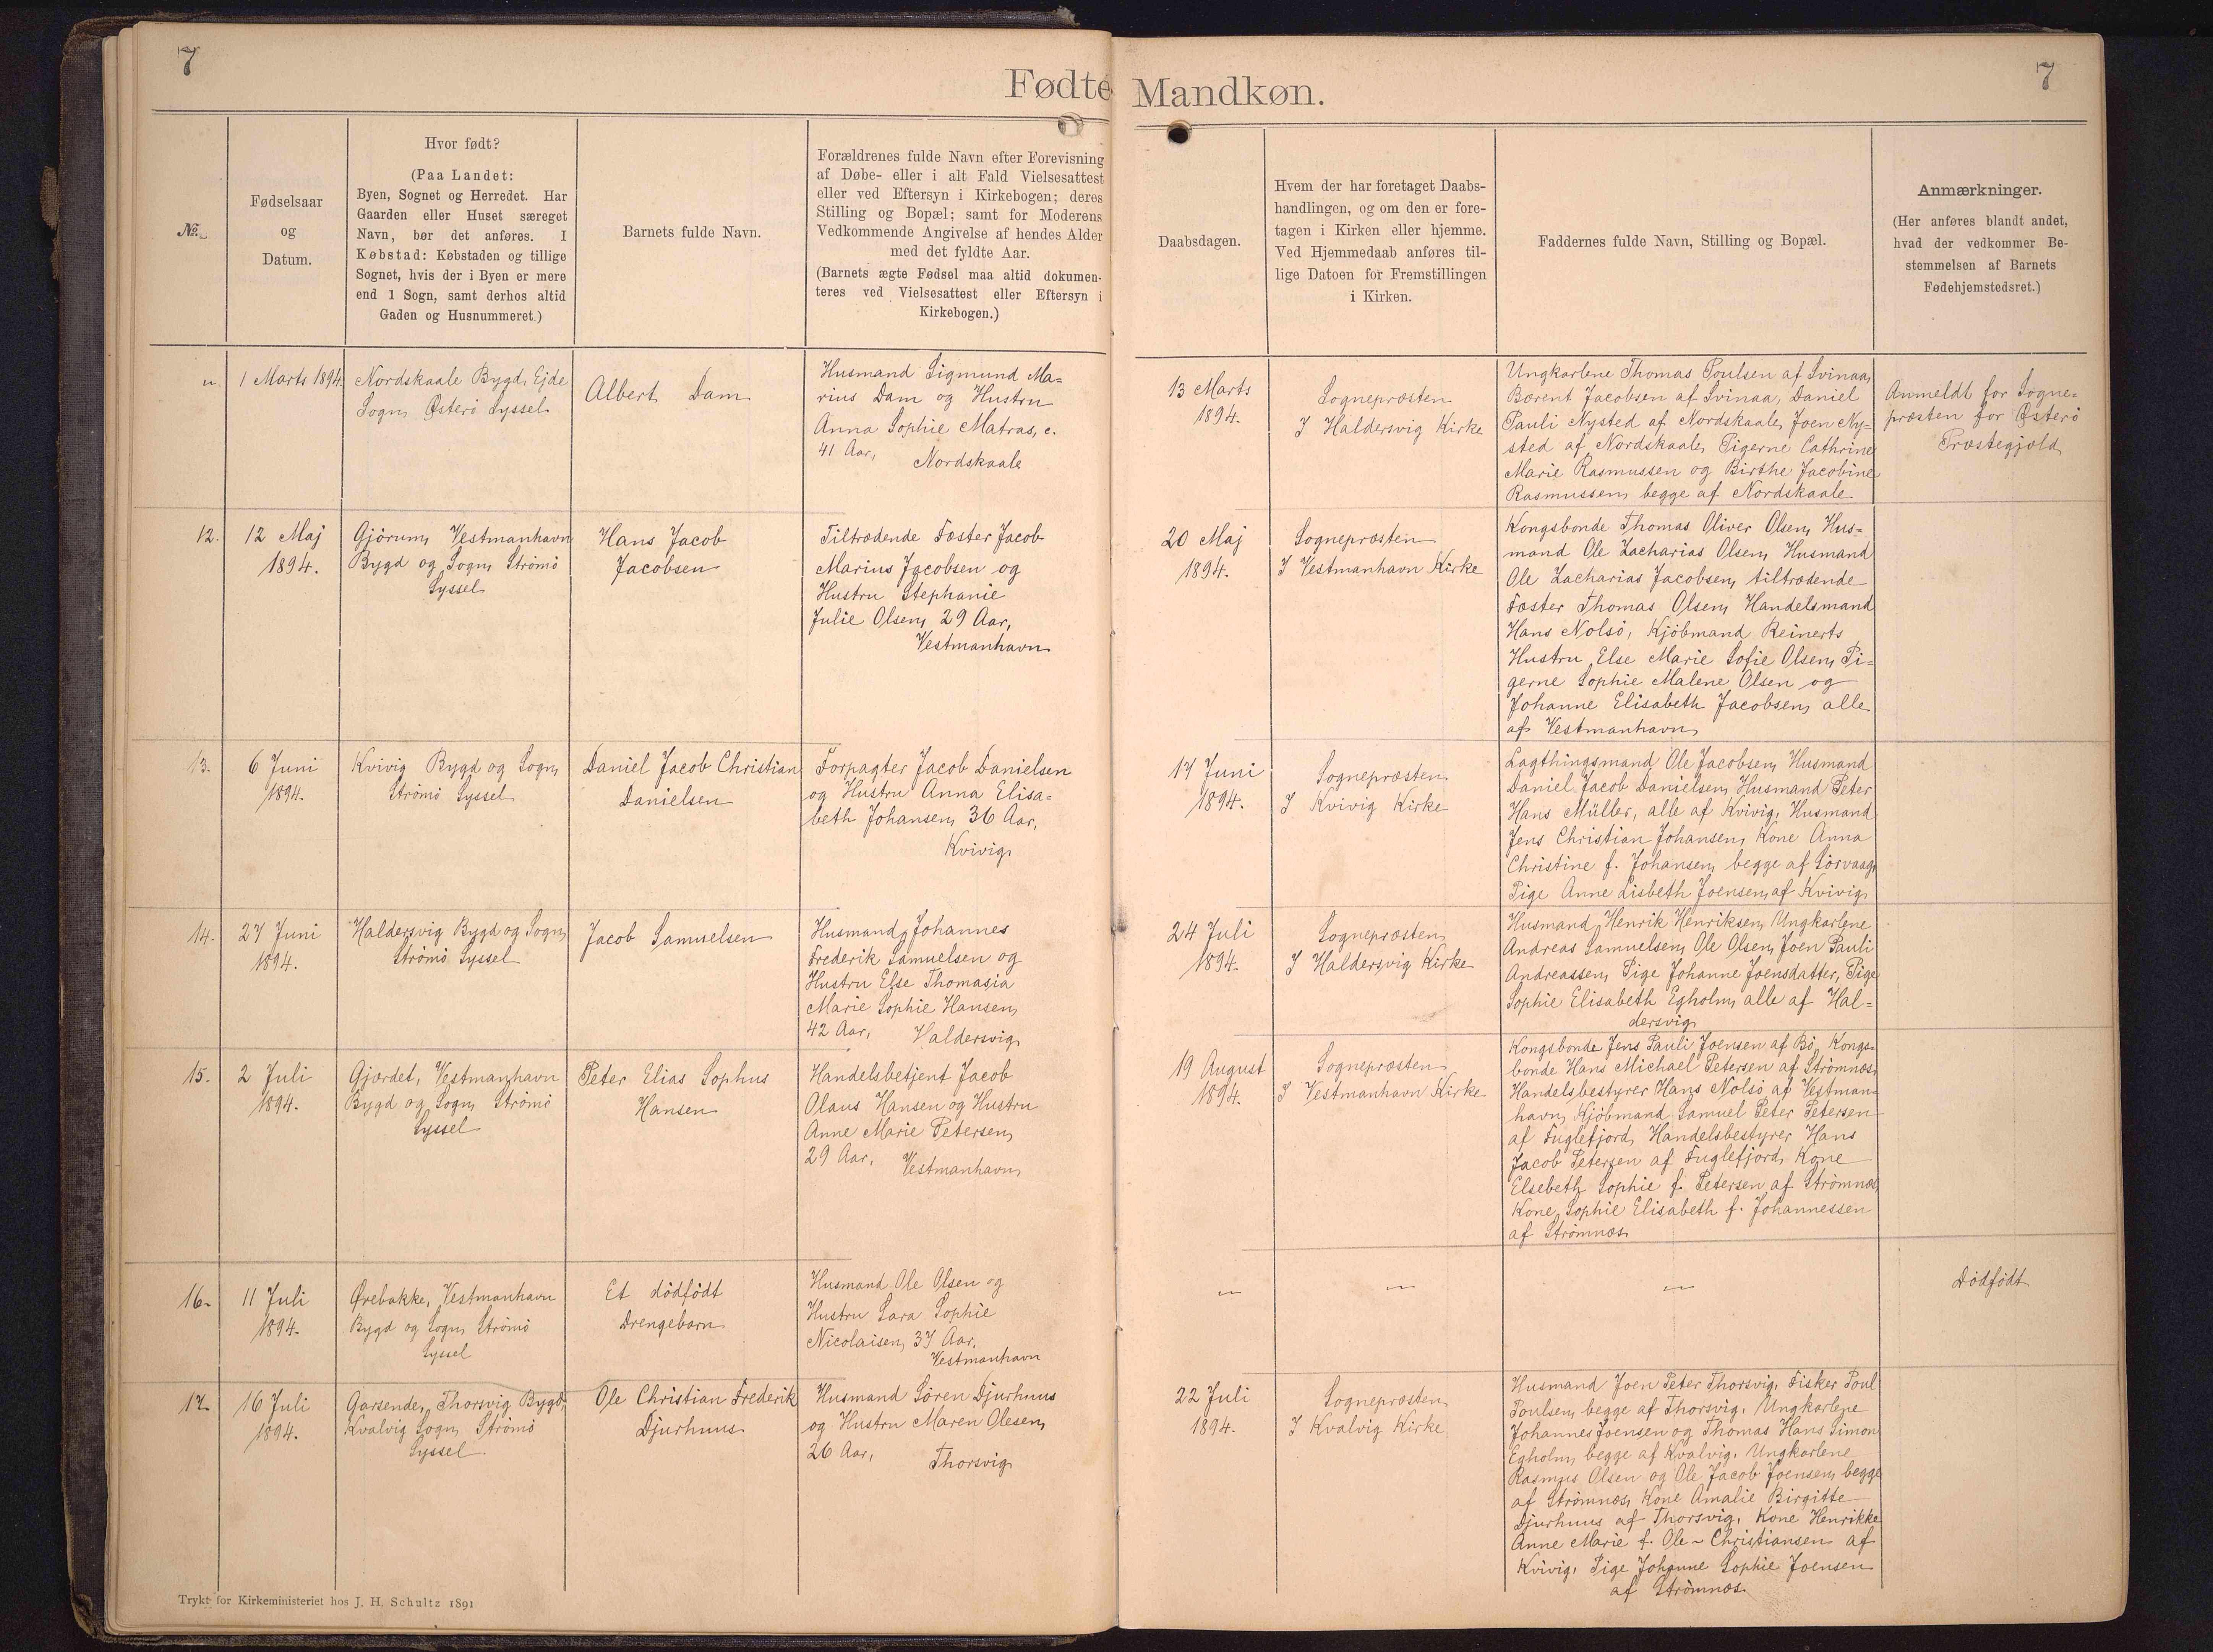 7
Fødte Mandkøn.
7
No.
Fødselsaar
og
Datum.
Hvor født?
(Paa Landet:
Byen, Sognet og Herredet. Har
Gaarden eller Huset særeget
Navn, bør det anføres. I
Købstad: Købstaden og tillige
Sognet, hvis der i Byen er mere
end 1 Sogn, samt derhos altid
Gaden og Husnummeret.)
Barnets fulde Navn.
Forældrenes fulde Navn efter Forevisning
af Døbe- eller i alt Fald Vielsesattest
eller ved Eftersyn i Kirkebogen; deres
Stilling og Bopæl; samt for Moderens
Vedkommende Angivelse af hendes Alder
med det fyldte Aar.
(Barnets ægte Fødsel maa altid dokumen-
teres ved Vielsesattest eller Eftersyn i
Kirkebogen.)
Daabsdagen.
Hvem der har foretaget Daabs-
handlingen, og om den er fore-
tagen i Kirken eller hjemme.
Ved Hjemmedaab anføres til-
lige Datoen for Fremstillingen
i Kirken.
Faddernes fulde Navn, Stilling og Bopæl.
Anmærkninger.
(Her anføres blandt andet,
hvad der vedkommer Be-
stemmelsen af Barnets
Fødehjemstedsret.)
"
1 Marts 1894.
Nordskaale Bygd, Ejde
Sogn, Østerö Syssel
Albert Dam
Husmand Sigmund Ma=
rius Dam og Hustru
Anna Sophie Matras,
41 Aar,
Nordskaale
13 Marts
1894.
Sognepræsten
I Haldersvig Kirke
Ungkarlene Thomas Poulsen af Svinaa,
Bærent Jacobsen af Svinaa, Daniel
Pauli Nysted af Nordskaale, Joen Ny=
sted af Nordskaale, Pigerne Cathrine
Marie Rasmussen og Birthe Jacobine
Rasmussen, begge af Nordskaale
Anmeldt for Sogne=
præsten for Østerö
Præstegjæld
12.
12 Maj
1894.
Gjørum, Vestmanhavn
Bygd og Sogn, Strömö
Syssel
Hans Jacob
Jacobsen
Tiltrædende Fæster Jacob
Marius Jacobsen og
Hustru Stephanie
Julie Olsen, 29 Aar,
Vestmanhavn
20 Maj
1894.
Sognepræsten
I Vestmanhavn Kirke
Kongsbonde Thomas Oliver Olsen, Hus=
mand Ole Zacharias Olsen, Husmand
Ole Zacharias Jacobsen, tiltrædende
Fæster Thomas Olsen, Handelsmand
Hans Nolsö, Kjöbmand Reinerts
Hustru Else Marie Sofie Olsen, Pi=
gerne Sophie Malene Olsen og
Johanne Elisabeth Jacobsen, alle
af Vestmanhavn
13.
6 Juni
1894.
Kvivig Bygd og Sogn,
Strömö Syssel
Daniel Jacob Christian
Danielsen
Forpagter Jacob Danielsen
og Hustru Anna Elisa=
beth Johansen, 36 Aar,
Kvivig
17 Juni
1894.
Sognepræsten
I Kvivig Kirke
Lagthingsmand Ole Jacobsen, Husmand
Daniel Jacob Danielsen, Husmand Peter
Hans Müller, alle af Kvivig, Husmand
Jens Christian Johansen, Kone Anna
Christine f. Johansen, begge af Sörvaag,
Pige Anne Lisbeth Joensen, af Kvivig
14.
27 Juni
1894.
Haldersvig Bygd og Sogn,
Strömö Syssel
Jacob Samuelsen
Husmand Johannes
Frederik Samuelsen og
Hustru Else Thomasia
Marie Sophie Hansen,
42 Aar,
Haldersvig
24 Juli
1894.
Sognepræsten
I Haldersvig Kirke
Husmand Henrik Henriksen, Ungkarlene
Andreas Samuelsen, Ole Olsen, Joen Pauli
Andreassen, Pige Johanne Joensdatter, Pige
Sophie Elisabeth Egholm, alle af Hal=
dersvig
15.
2 Juli
1894.
Gjærdet, Vestmanhavn
Bygd og Sogn, Strömö
Syssel
Peter Elias Sophus
Hansen
Handelsbetjent Jacob
Olaus Hansen og Hustru
Anne Marie Petersen,
29 Aar,
Vestmanhavn
19 August
1894.
Sognepræsten
I Vestmanhavn Kirke
Kongsbonde Jens Pauli Joensen af Bö, Kongs=
bonde Hans Michael Petersen af Strömnæs,
Handelsbestyrer Hans Nolsö af Vestman=
havn, Kjöbmand Samuel Peter Petersen
af Fuglefjord, Handelsbestyrer Hans
Jacob Petersen af Fuglefjord, Kone
Elsebeth Sophie f. Petersen af Strömnæs,
Kone Sophie Elisabeth f. Johannessen
af Strömnæs
16.
11 Juli
1894.
Ørebakke, Vestmanhavn
Bygd og Sogn, Strömö
Syssel
Et dödfödt
Drengebarn
Husmand Ole Olsen og
Hustru Sara Sophie
Nicolaisen, 37 Aar,
Vestmanhavn
"
"
"
Dödfödt
17.
16 Juli
1894.
Garsende, Thorsvig Bygd,
Kvalvig Sogn, Strömö
Syssel
Ole Christian Frederik
Djurhuus
Husmand Sören Djurhuus
og Hustru Maren Olesen,
26 Aar,
Thorsvig
22 Juli
1894.
Sognepræsten
I Kvalvig Kirke
Husmand Joen Peter Thorsvig, Fisker Poul
Poulsen, begge af Thorsvig, Ungkarlene
Johannes Joensen og Thomas Hans Simon
Egholm, begge af Kvalvig, Ungkarlene
Rasmus Olsen og Ole Jacob Joensen, begge
af Strömnæs, Kone Amalie Birgitte
Djurhuus af Thorsvig, Kone Henrikke
Anne Marie f. Ole-Christiansen af
Kvivig, Pige Johanne Sophie Joensen
af Strömnæs
Trykt for Kirkeministeriet hos J. H. Schultz 1891